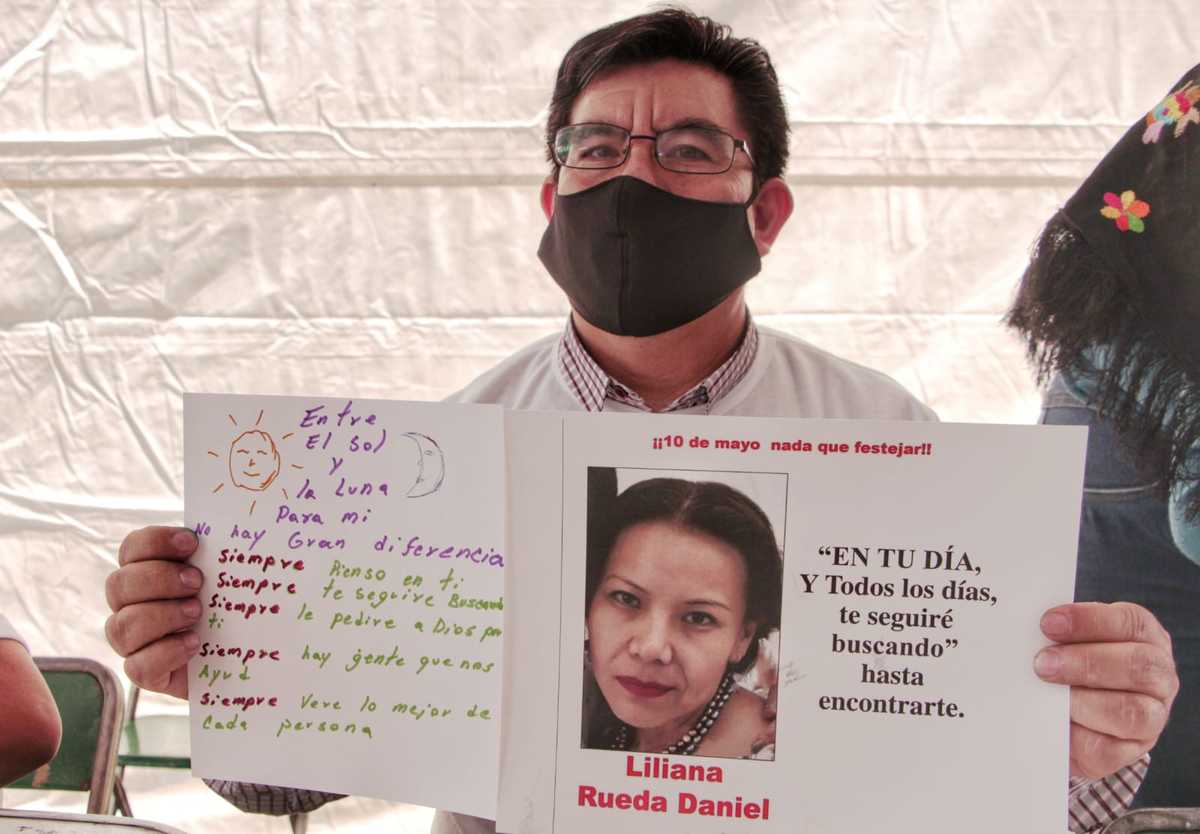 Entre
El Sol
y
la Luna
Para mi
No hay Gran diferencia
Siempre Pienso en ti
Siempre te seguire Buscando
Siempre le pedire a Dios por
ti
Siempre hay gente que nos
Ayud
Siempre Vere lo mejor de
Cada persona
¡¡10 de mayo nada que festejar!!
“EN TU DÍA,
Y Todos los días,
te seguiré
buscando”
hasta
encontrarte.
Liliana
Rueda Daniel